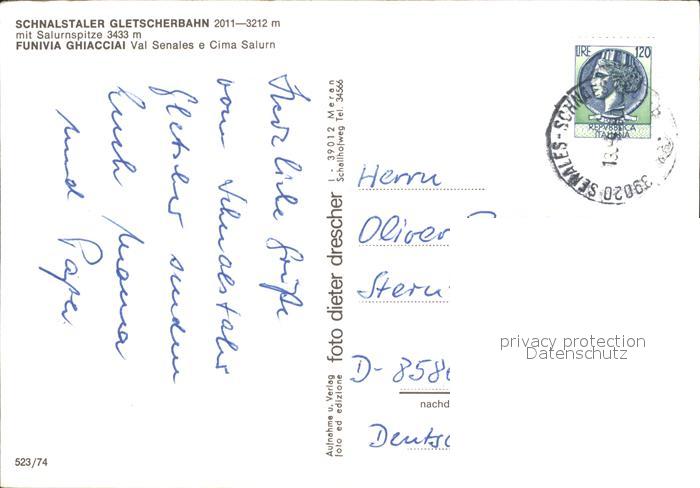 SCHNALSTALER GLETSCHERBAHN 2011—3212 m
mit Salurnspitze 3433 m
FUNIVIA GHIACCIAI Val Senales e Cima Salurn
Herzliche Grüße
vom Schnalstaler
Gletscher senden
Euch Mama
und Papa
Aufnahme u. Verlag
foto ed edizione
foto dieter drescher
I - 39012 Meran
Schallhofweg Tel. 34566
LIRE 120
REPUBBLICA
ITALIANA
39020 SENALES-SCHN
Herrn
Oliver
Stern
D-858
nachd
Deutsc
privacy protection
Datenschutz
523/74